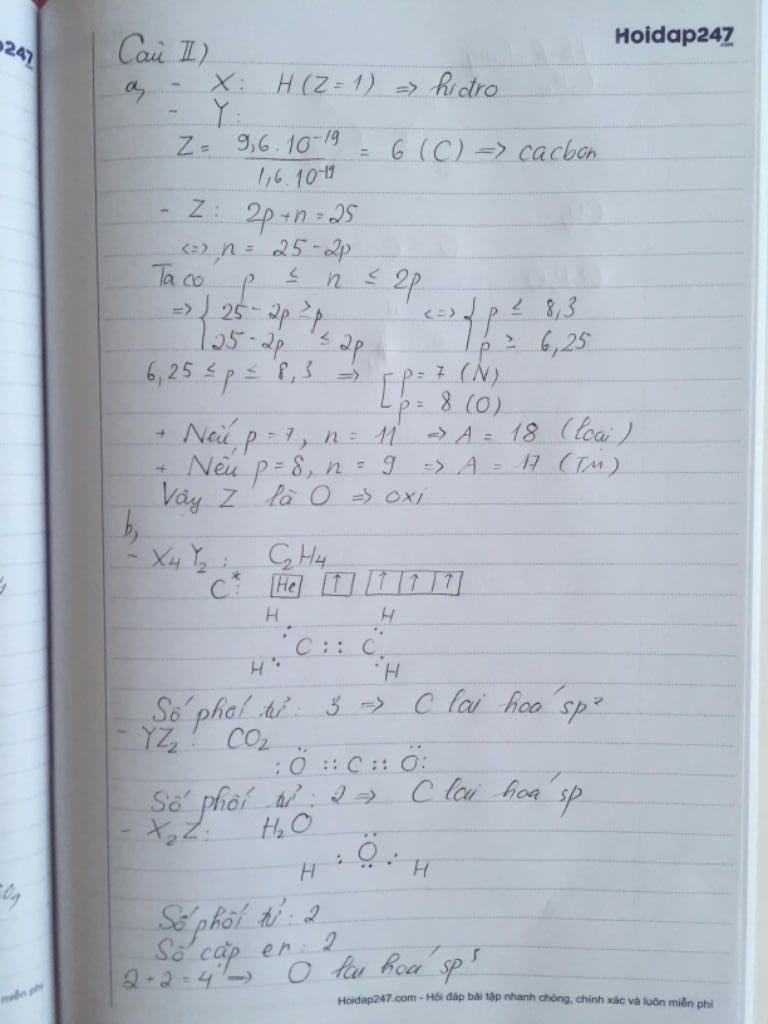 247
Hoidap247
.com
Câu II)
a, - X: H (Z=1) => hidro
- Y:
Z = 9,6.10⁻¹⁹ / 1,6.10⁻¹⁹ = 6 (C) => cacbon
- Z: 2p+n=25
<=> n = 25-2p
Ta có p ≤ n ≤ 2p
=> { 25-2p ≥ p <=> { p ≤ 8,3
25-2p ≤ 2p p ≥ 6,25
6,25 ≤ p ≤ 8,3 => [ p = 7 (N)
p = 8 (O)
+ Nếu p=7, n = 11 => A = 18 (loại)
+ Nếu p=8, n = 9 => A = 17 (TM)
Vậy Z là O => oxi
b,
- X₄Y₂: C₂H₄
C*: [He] [↑] [↑|↑|↑]
H H
C :: C
H H
Số phối tử: 3 => C lai hoá sp²
- YZ₂: CO₂
:Ö :: C :: Ö:
Số phối tử: 2 => C lai hoá sp
- X₂Z: H₂O
H : Ö : H
Số phối tử: 2
Số cặp en: 2
2+2=4 -> O lai hoá sp³
miễn phí
Hoidap247.com - Hỏi đáp bài tập nhanh chóng, chính xác và luôn miễn phí